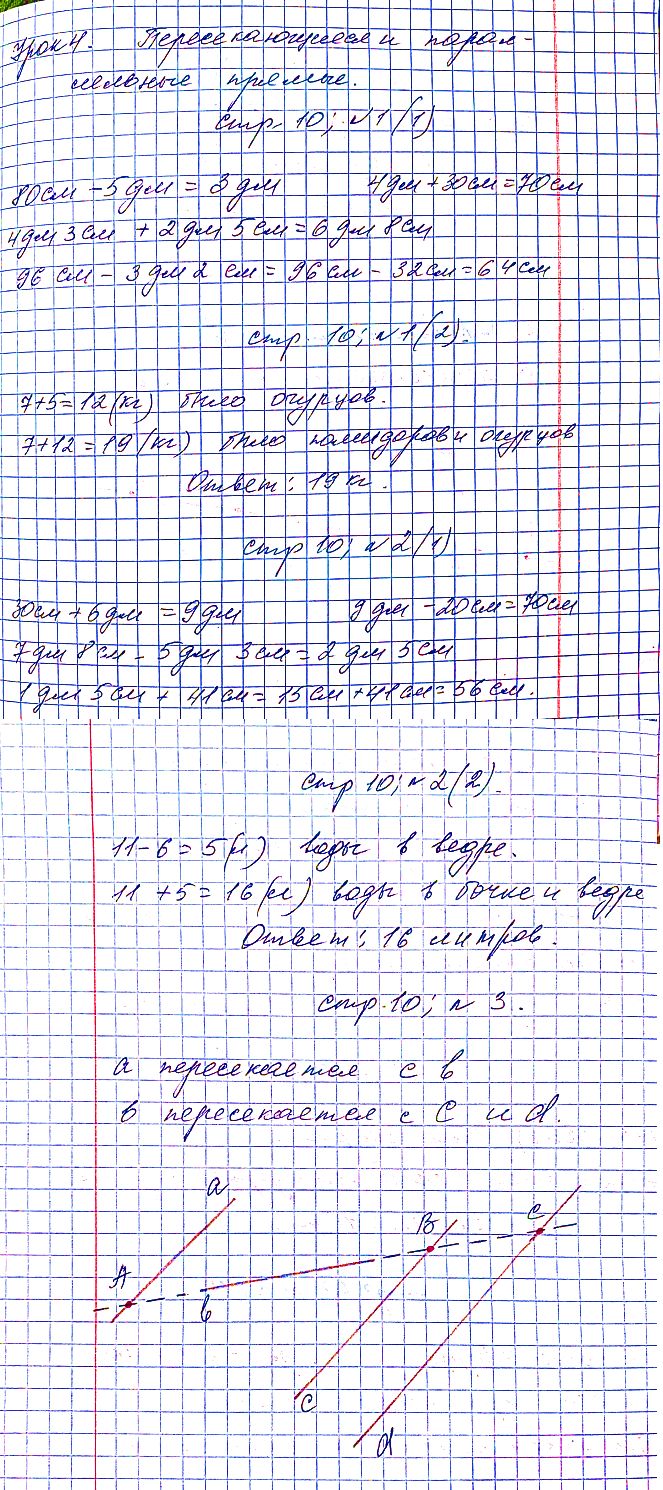 Урок 4. Пересекающиеся и парал-
лельные прямые.
стр. 10; №1 (1)
80 см - 5 дм = 3 дм 4 дм + 30 см = 70 см
4 дм 3 см + 2 дм 5 см = 6 дм 8 см
96 см - 3 дм 2 см = 96 см - 32 см = 64 см
стр. 10; №1 (2).
7+5=12 (кг) было огурцов.
7+12=19 (кг) было помидоров и огурцов
Ответ: 19 кг.
стр 10; №2 (1)
30 см + 6 дм = 9 дм 9 дм - 20 см = 70 см
7 дм 8 см - 5 дм 3 см = 2 дм 5 см
1 дм 5 см + 41 см = 15 см + 41 см = 56 см.
стр 10; №2 (2).
11-6=5 (л) воды в ведре.
11+5=16 (л) воды в бочке и ведре
Ответ: 16 литров.
стр. 10; №3.
a пересекается с b
b пересекается с c и d.
a
B
C
A
b
c
d